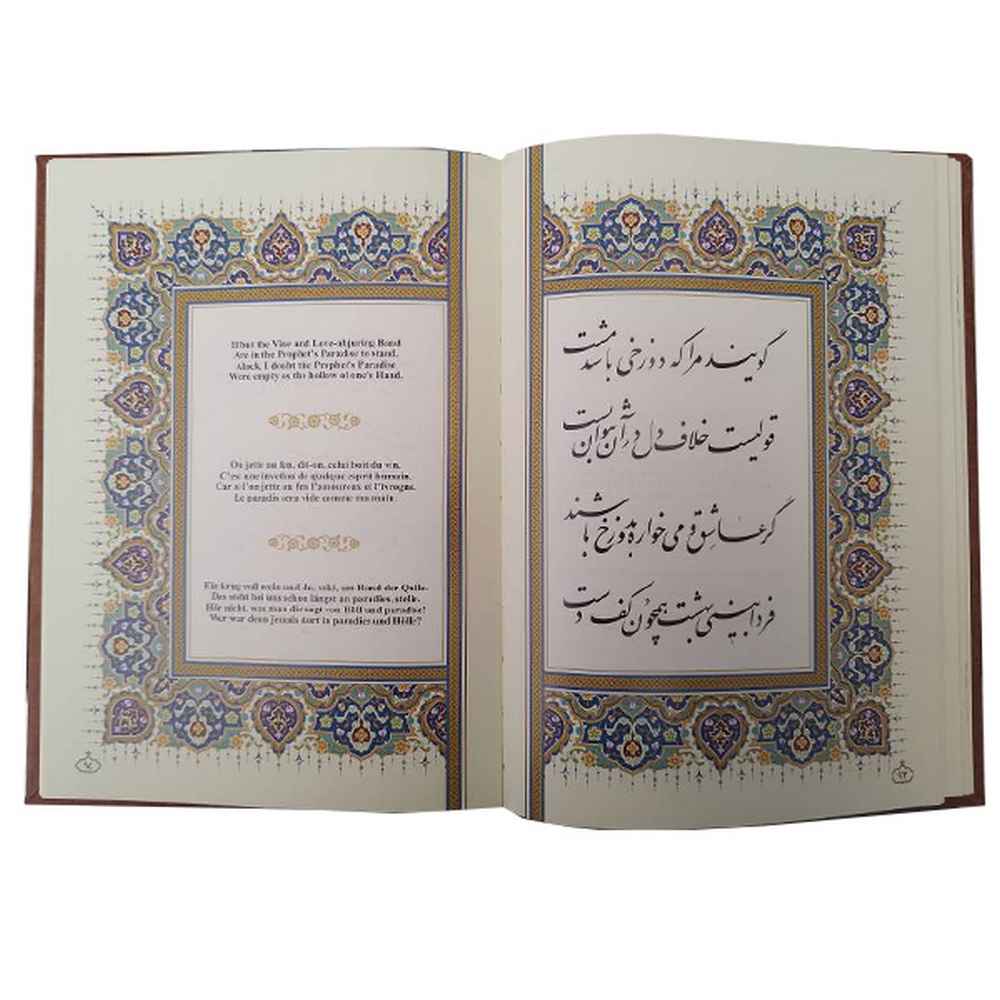 گویند مرا که دوزخی باشد مست
قولیست خلاف دل در آن نتوان بست
گر عاشق و می خواره بدوزخ باشند
فردا بینی بهشت همچون کف دست
۹۳
If but the Vine and Love-abjuring Band
Are in the Prophet's Paradise to stand,
Alack, I doubt the Prophet's Paradise
Were empty as the hollow of one's Hand.
On jette au feu, dit-on, celui boit du vin,
C'est une invetion de quelque esprit humain.
Car si l'on jette au feu l'amoureux et l'Ivrogne,
Le paradis sera vide comme ma main.
Ein krug voll wein und du, saki, am Rand der Qulle.
Das steht bei uns schon längst an paradies, stelle.
Hör nicht, was man die sagt von Höll und paradise!
Wer war denn jemals dort in paradies und Hölle?